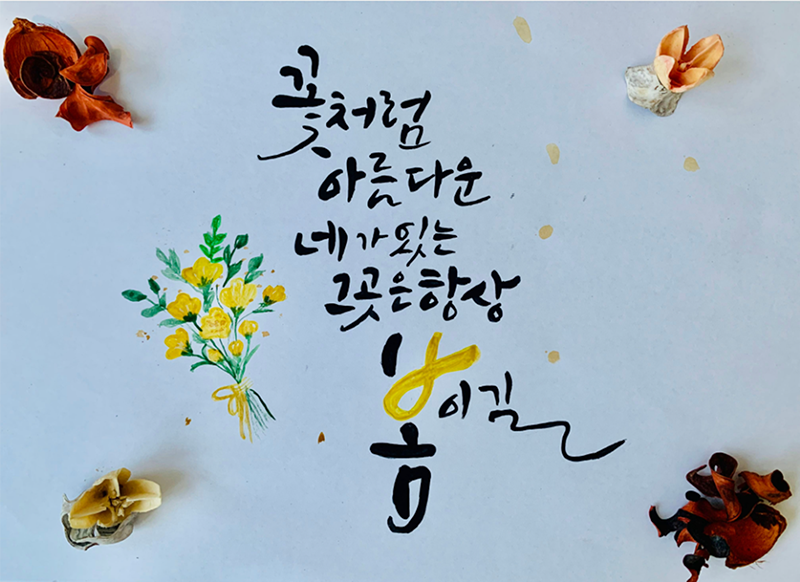 꽃처럼
아름다운
네가 있는
그곳은 항상
봄이길